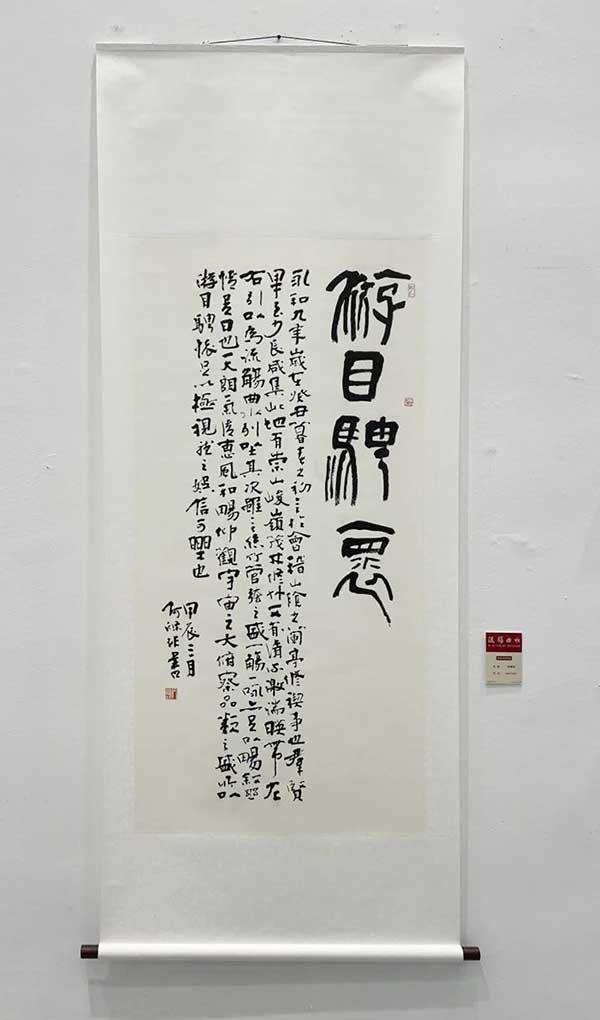 游目騁懷
永和九年歲在癸丑暮春之初於會稽山陰之蘭亭修禊事也羣賢
畢至少長咸集此地有崇山峻嶺茂林修竹又有清流激湍映帶左
右引以為流觴曲水列坐其次雖無絲竹管弦之盛一觴一詠亦足以暢敘幽
情是日也天朗氣清惠風和暢仰觀宇宙之大俯察品類之盛所以
游目騁懷足以極視聽之娛信可樂也
甲辰三月
何 書
流觴曲水